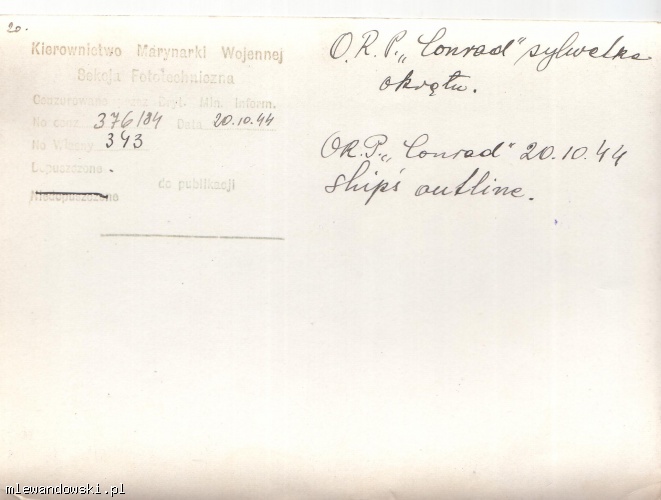 20.
Kierownictwo Marynarki Wojennej
Sekcja Fototechniczna
Cenzurowano przez Bryt. Min. Inform.
No cenz. 376/84 Data 20.10.44
No Własny 343
Dopuszczone
do publikacji
Niedopuszczone
O.R.P. „Conrad" sylwetka
okrętu.
O.R.P. „Conrad" 20.10.44
Ship's outline.
mlewandowski.pl